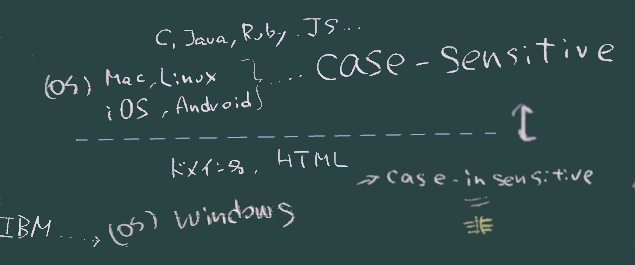 C, Java, Ruby. JS...
(OS) Mac, Linux ..... case-sensitive
iOS, Android
ドメイン名, HTML
→ case-insensitive
IBM....→ (OS) Windows